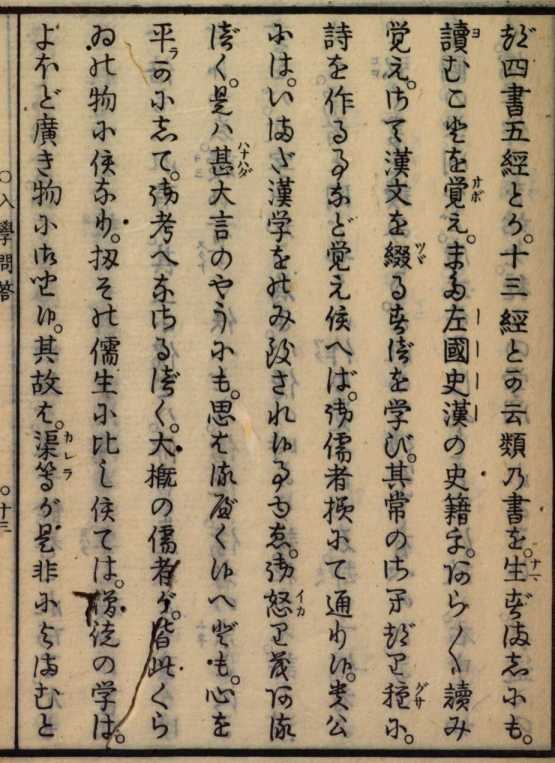 ば四書五經とか。十三經とか云類乃書を。生ざかしにも。
讀むことを覚え。また左國史漢の史籍を。あら〳〵讀み
覚え。はて漢文を綴る法を学び。其常の
詩を作る事など覚え候へば。御儒者様にて通り候。貴公
には。いまだ漢学をのみ致され候事ゆゑ。御怒も
べく。是ハ甚大言のやうにも。思はるべく候へども。心を
平らかにして。御考へなさるべく。大概の儒者が。皆此くら
ゐの物に候なり。扨その儒生に比し候ては。僧徒の学は。
よほど廣き物に御坐候。其故は。渠等が是非によまむと
入學問答
十三